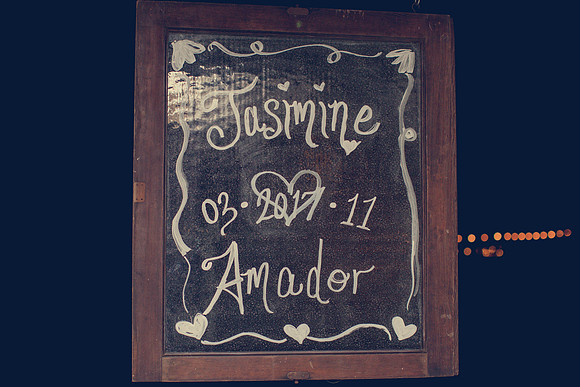 Jasimine
03 · 2017 · 11
Amador